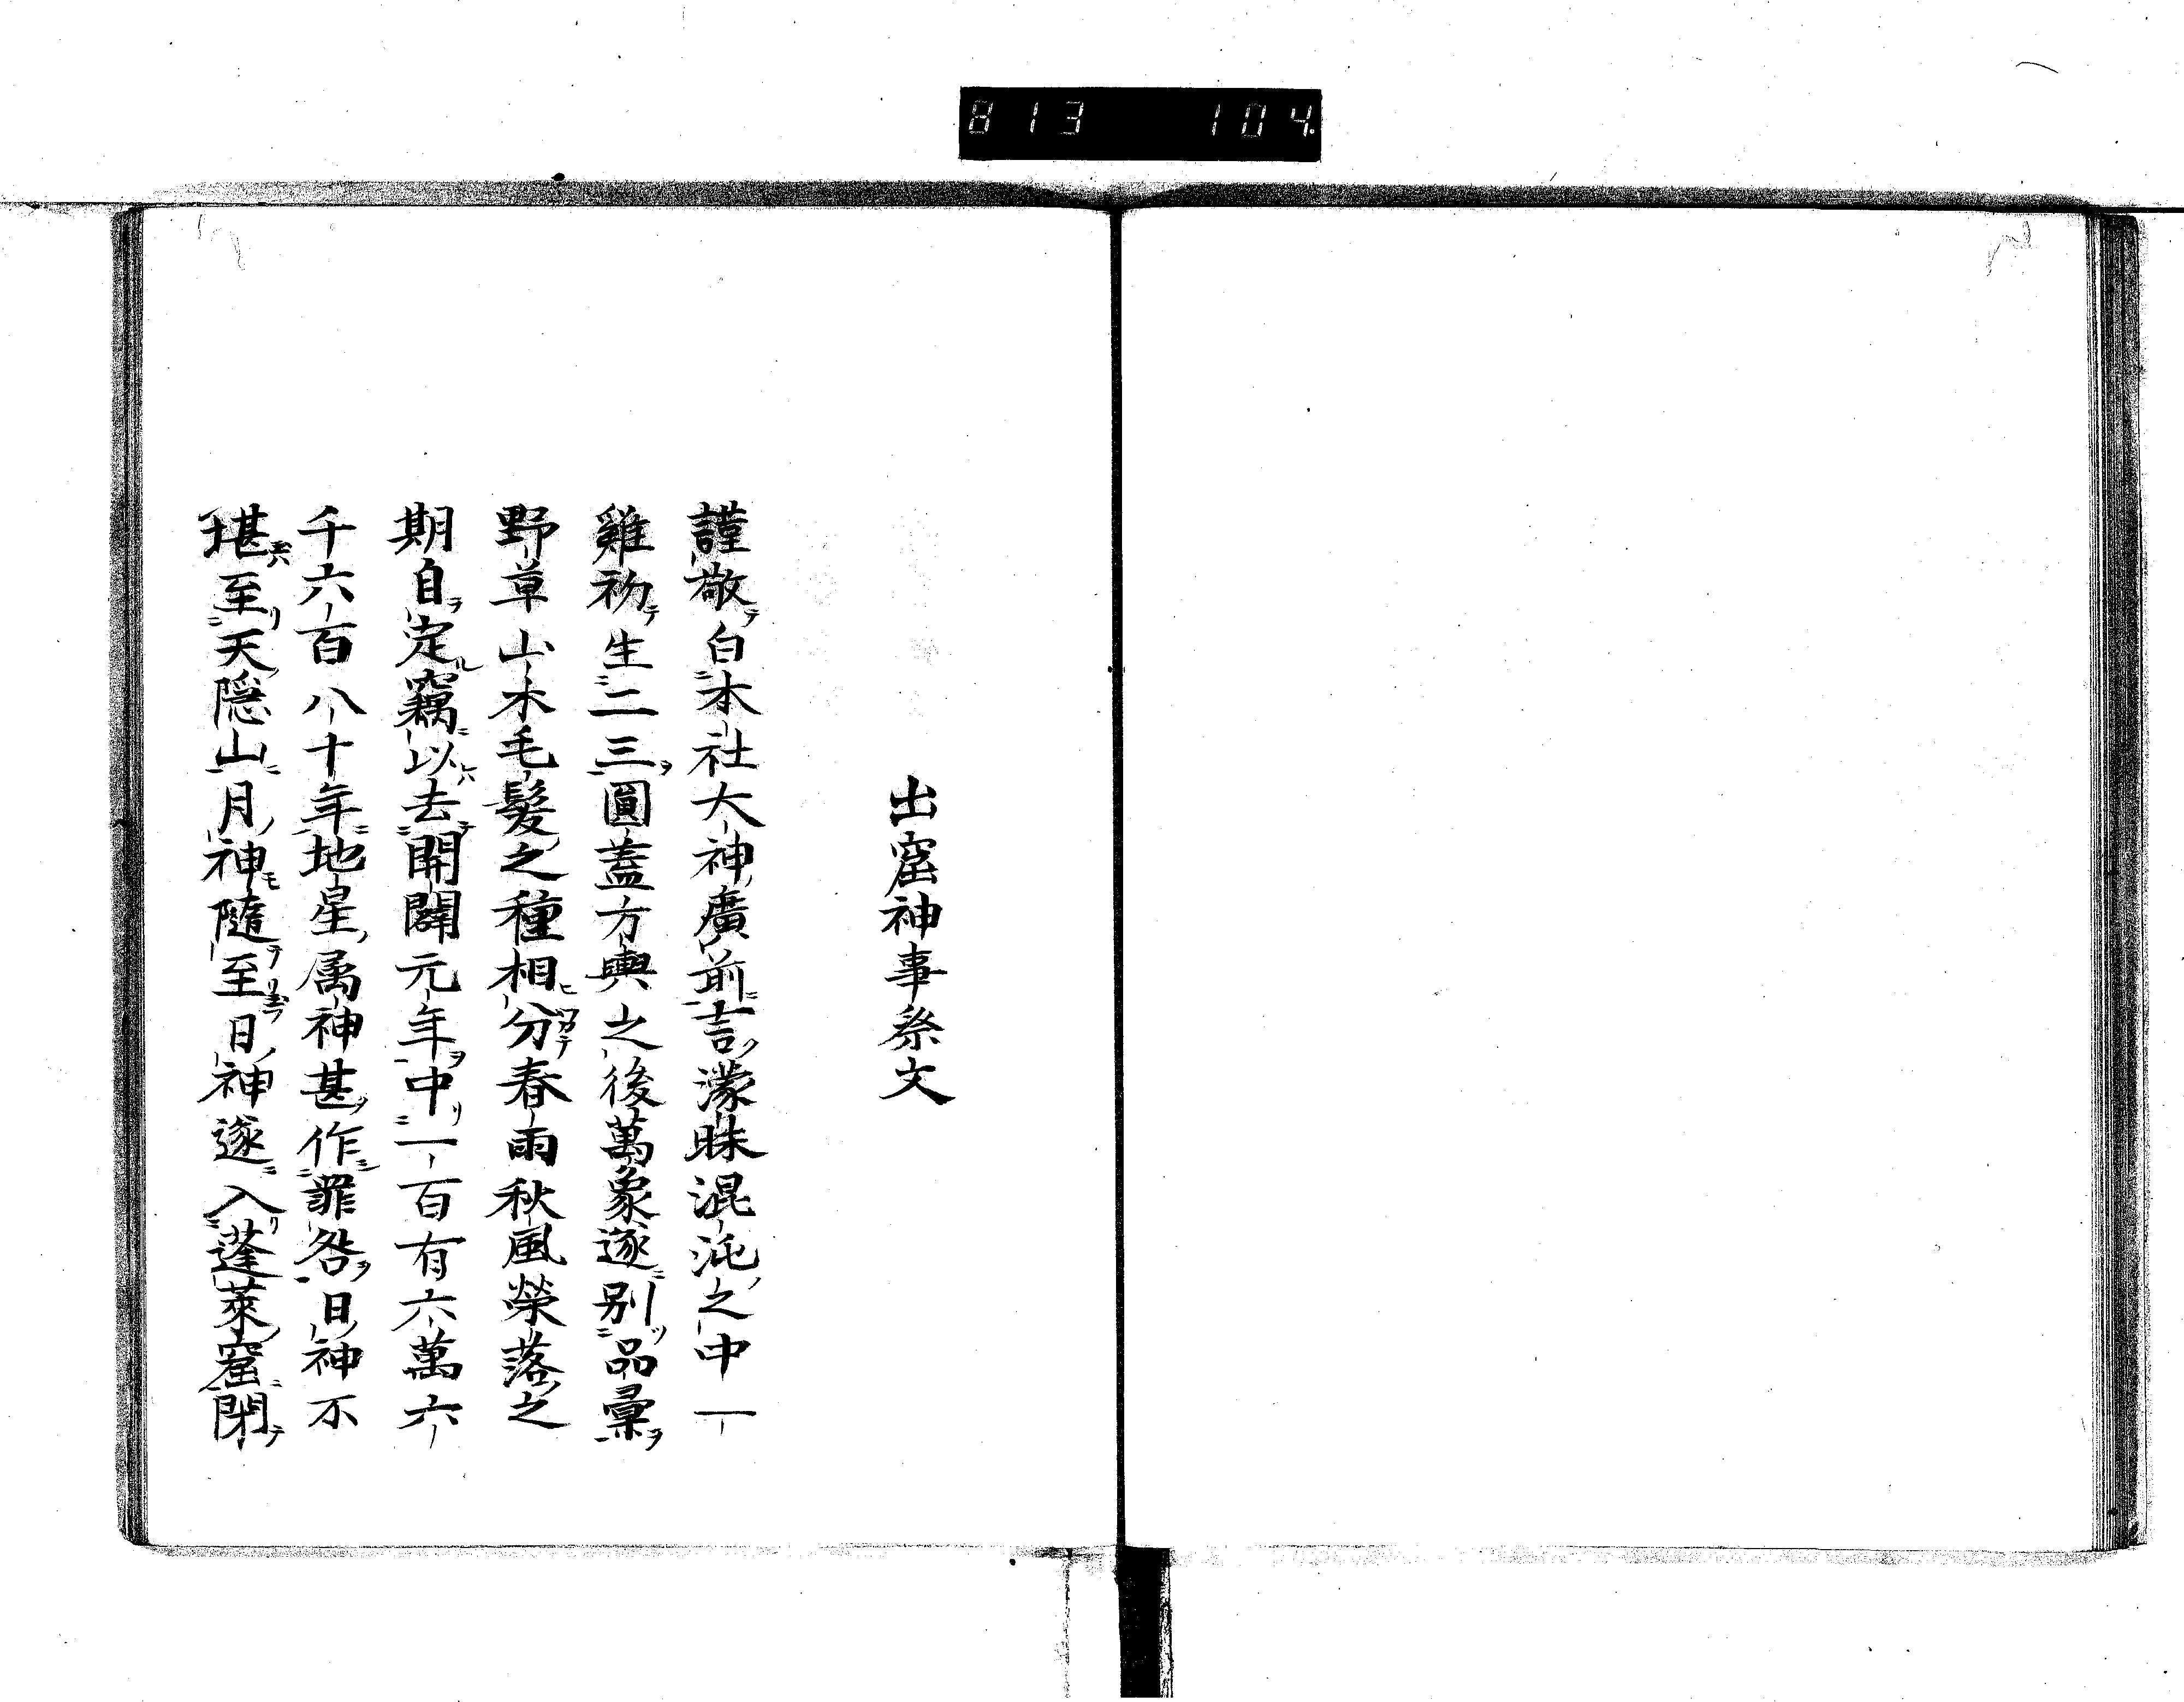 813 104
出窟神事祭文
謹敬白本社大神廣前言濛昧混沌之中一
雞初生二三圓蓋方輿之後萬象遂別品彙
野草山木毛髮之種相分春雨秋風榮落之
期自定竊以去開闢元年中一百有六萬六
千六百八十年地星属神甚作罪咎日神不
堪至天隠山月神隨至日神遂入蓬萊窟閉